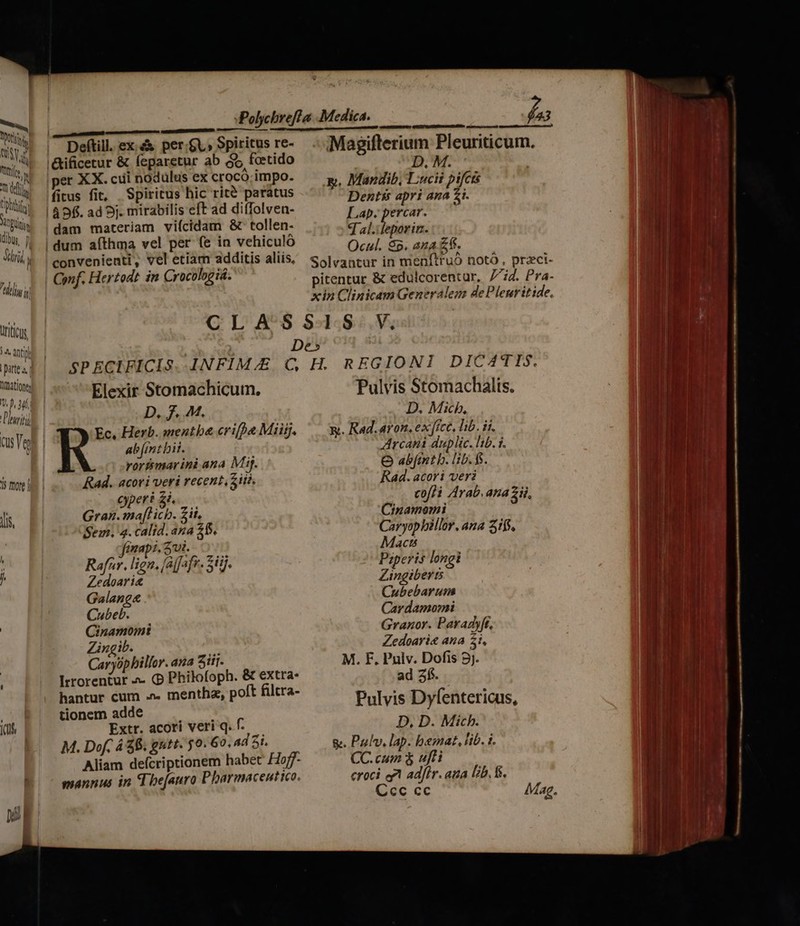 Polychresta Medica. 743
Destill. ex & per , Spiritus re-
ctificetur & separetur ab fœtido
per XX. cui nodulus ex crocô impo-
situs fit, Spiritus hic ritè paratus
à ℈ß. ad ℈j. mirabilis est ad dissolven-
dam materiam viscidam & tollen-
dum asthma vel per se in vehiculô
convenienti, vel etiam additis aliis,
Conf. Hertodt in Crocologiâ.
Magisterium Pleuriticum.
D. M.
℞. Mandib, Lucii piscis
Dentis apri ana ʒi.
Lap. percar.
Tal. leporin.
Ocul. ♋. ana ʒß.
Solvantur in menstruô notô, præci-
pitentur & edulcorentur, Vid. Pra-
xin Clinicam Generalem de Pleuritide.
CLASSIS V.
De
SPECIFICIS INFIMÆ C, H. REGIONI DICATIS.
Elexir Stomachicum.
D. J. M.
REc, Herb. menthæ crispæ Miiij.
absinthii.
rorismarini ana Mij.
Rad. acori veri recent, ʒiii.
cyperi ʒi.
Gran. mastich. ʒii,
Sem. 4. calid. ana ʒß.
sinapi, ʒvi.
Rasur. lign. sassafr. ʒiij.
Zedoariæ
Galangæ
Cubeb.
Cinamomi
Zingib.
Caryophillor. ana ʒiij.
Irrorentur Philosoph. & extra-
hantur cum menthæ, post filtra-
tionem adde
Extr. acori veri q. s.
M. Dos. à ʒß. gutt. 50. 60. ad ʒi.
Aliam descriptionem habet Hoff-
mannus in Thesauro Pharmaceutico.
Pulvis Stomachalis.
D. Mich.
℞. Rad. aron. exsicc. lib. ii.
Arcani duplic. lib. i.
absinth. lib. ß.
Rad. acori veri
costi Arab. ana ʒii,
Cinamomi
Caryophillor. ana ʒiß.
Macis
Piperis longi
Zingiberis
Cubebarum
Cardamomi
Granor. Paradysi,
Zedoariæ ana ʒi,
M. F. Pulv. Dosis ℈j.
ad ʒß.
Pulvis Dysentericus,
D. D. Mich.
℞. Pulv. lap. hæmat. lib. i.
CC. cum usti
croci adstr. ana lib. ß.
Ccc cc Mag.